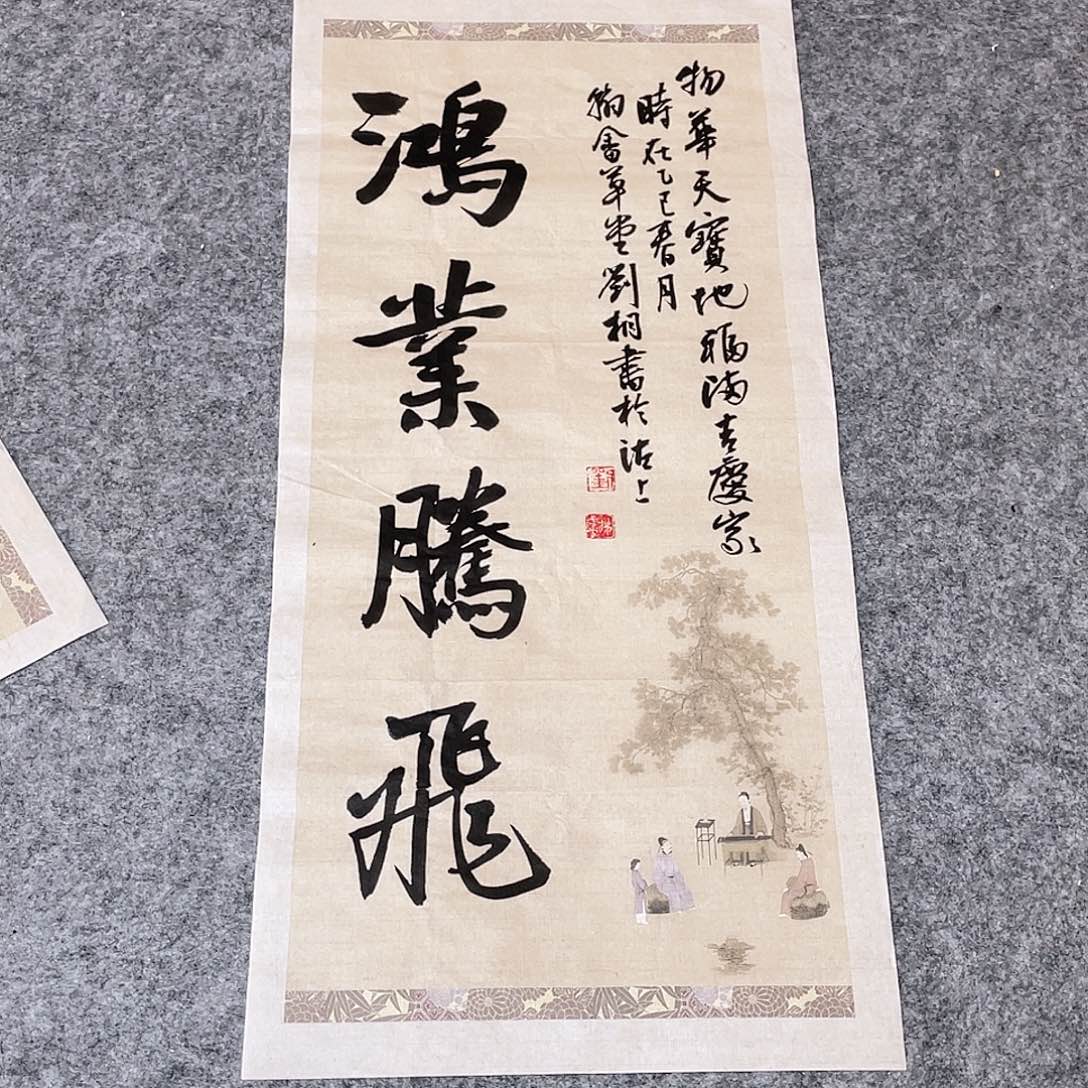 物華天寶地福滿吉慶家
時在乙巳春月
翰畬草堂劉桐書於沽上
鴻業騰飛